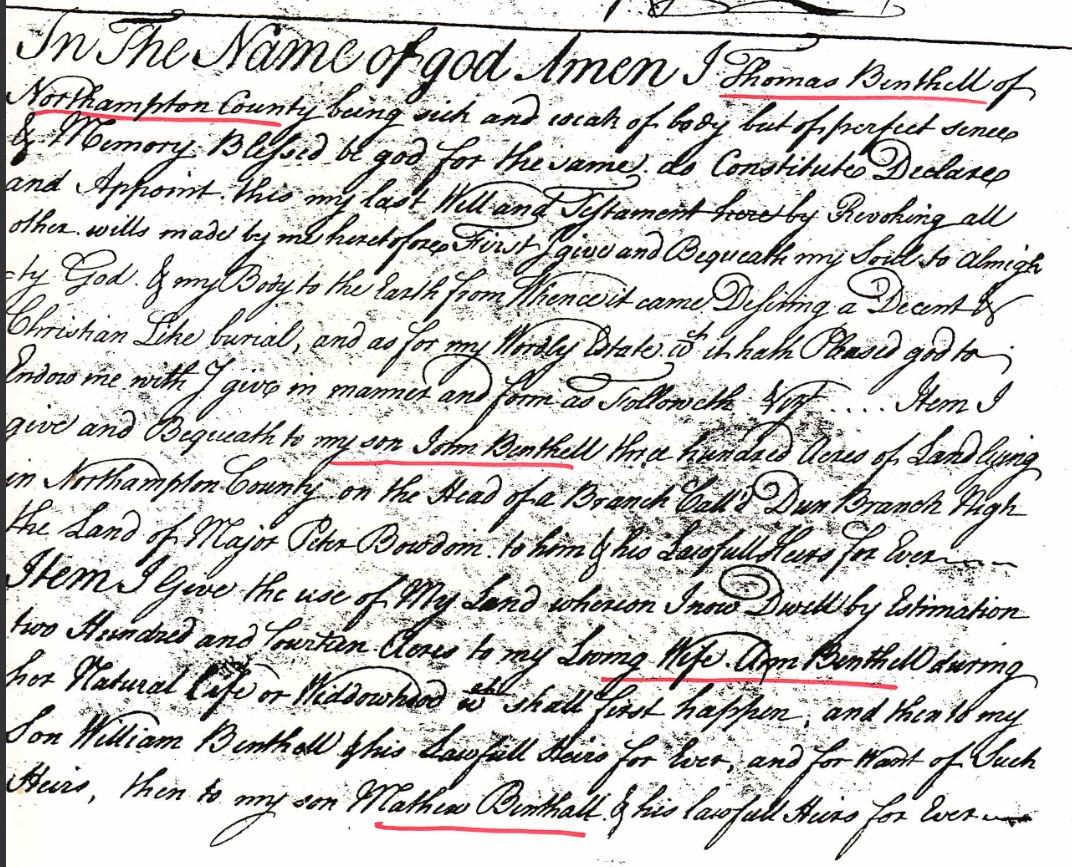 In The Name of god Amen I Thomas Benthell of
Northampton County being sick and weak of body but of perfect sence
& Memory Blessed be god for the same. do Constitute Declare
and Appoint this my last Will and Testament hereby Revoking all
other wills made by me heretofore First I give and Bequeath my Soul to Almigh
=ty God. & my Body to the Earth from Whence it came Desiring a Decent &
Christian Like burial, and as for my Wordly Estate wt it hath Pleased god to
Endow me with I give in manner and form as Followeth Vizt ..... Item I
give and Bequeath to my son John Benthell three hundred Acres of Land lying
in Northampton County on the Head of a Branch Call'd Dun Branch Nigh
the Land of Major Peter Bowdom. to him & his Lawfull Heirs for Ever
Item I Give the use of My Land whereon I now Dwell by Estimation
two Hundred and fourteen Acres to my Loving Wife Ann Benthell during
her Natural Life or Widdowhood wch shall first happen, and then to my
Son William Benthall & his Lawfull Heirs for Ever, and for Want of Such
Heirs, then to my son Mathew Benthall & his lawfull Heirs for Ever